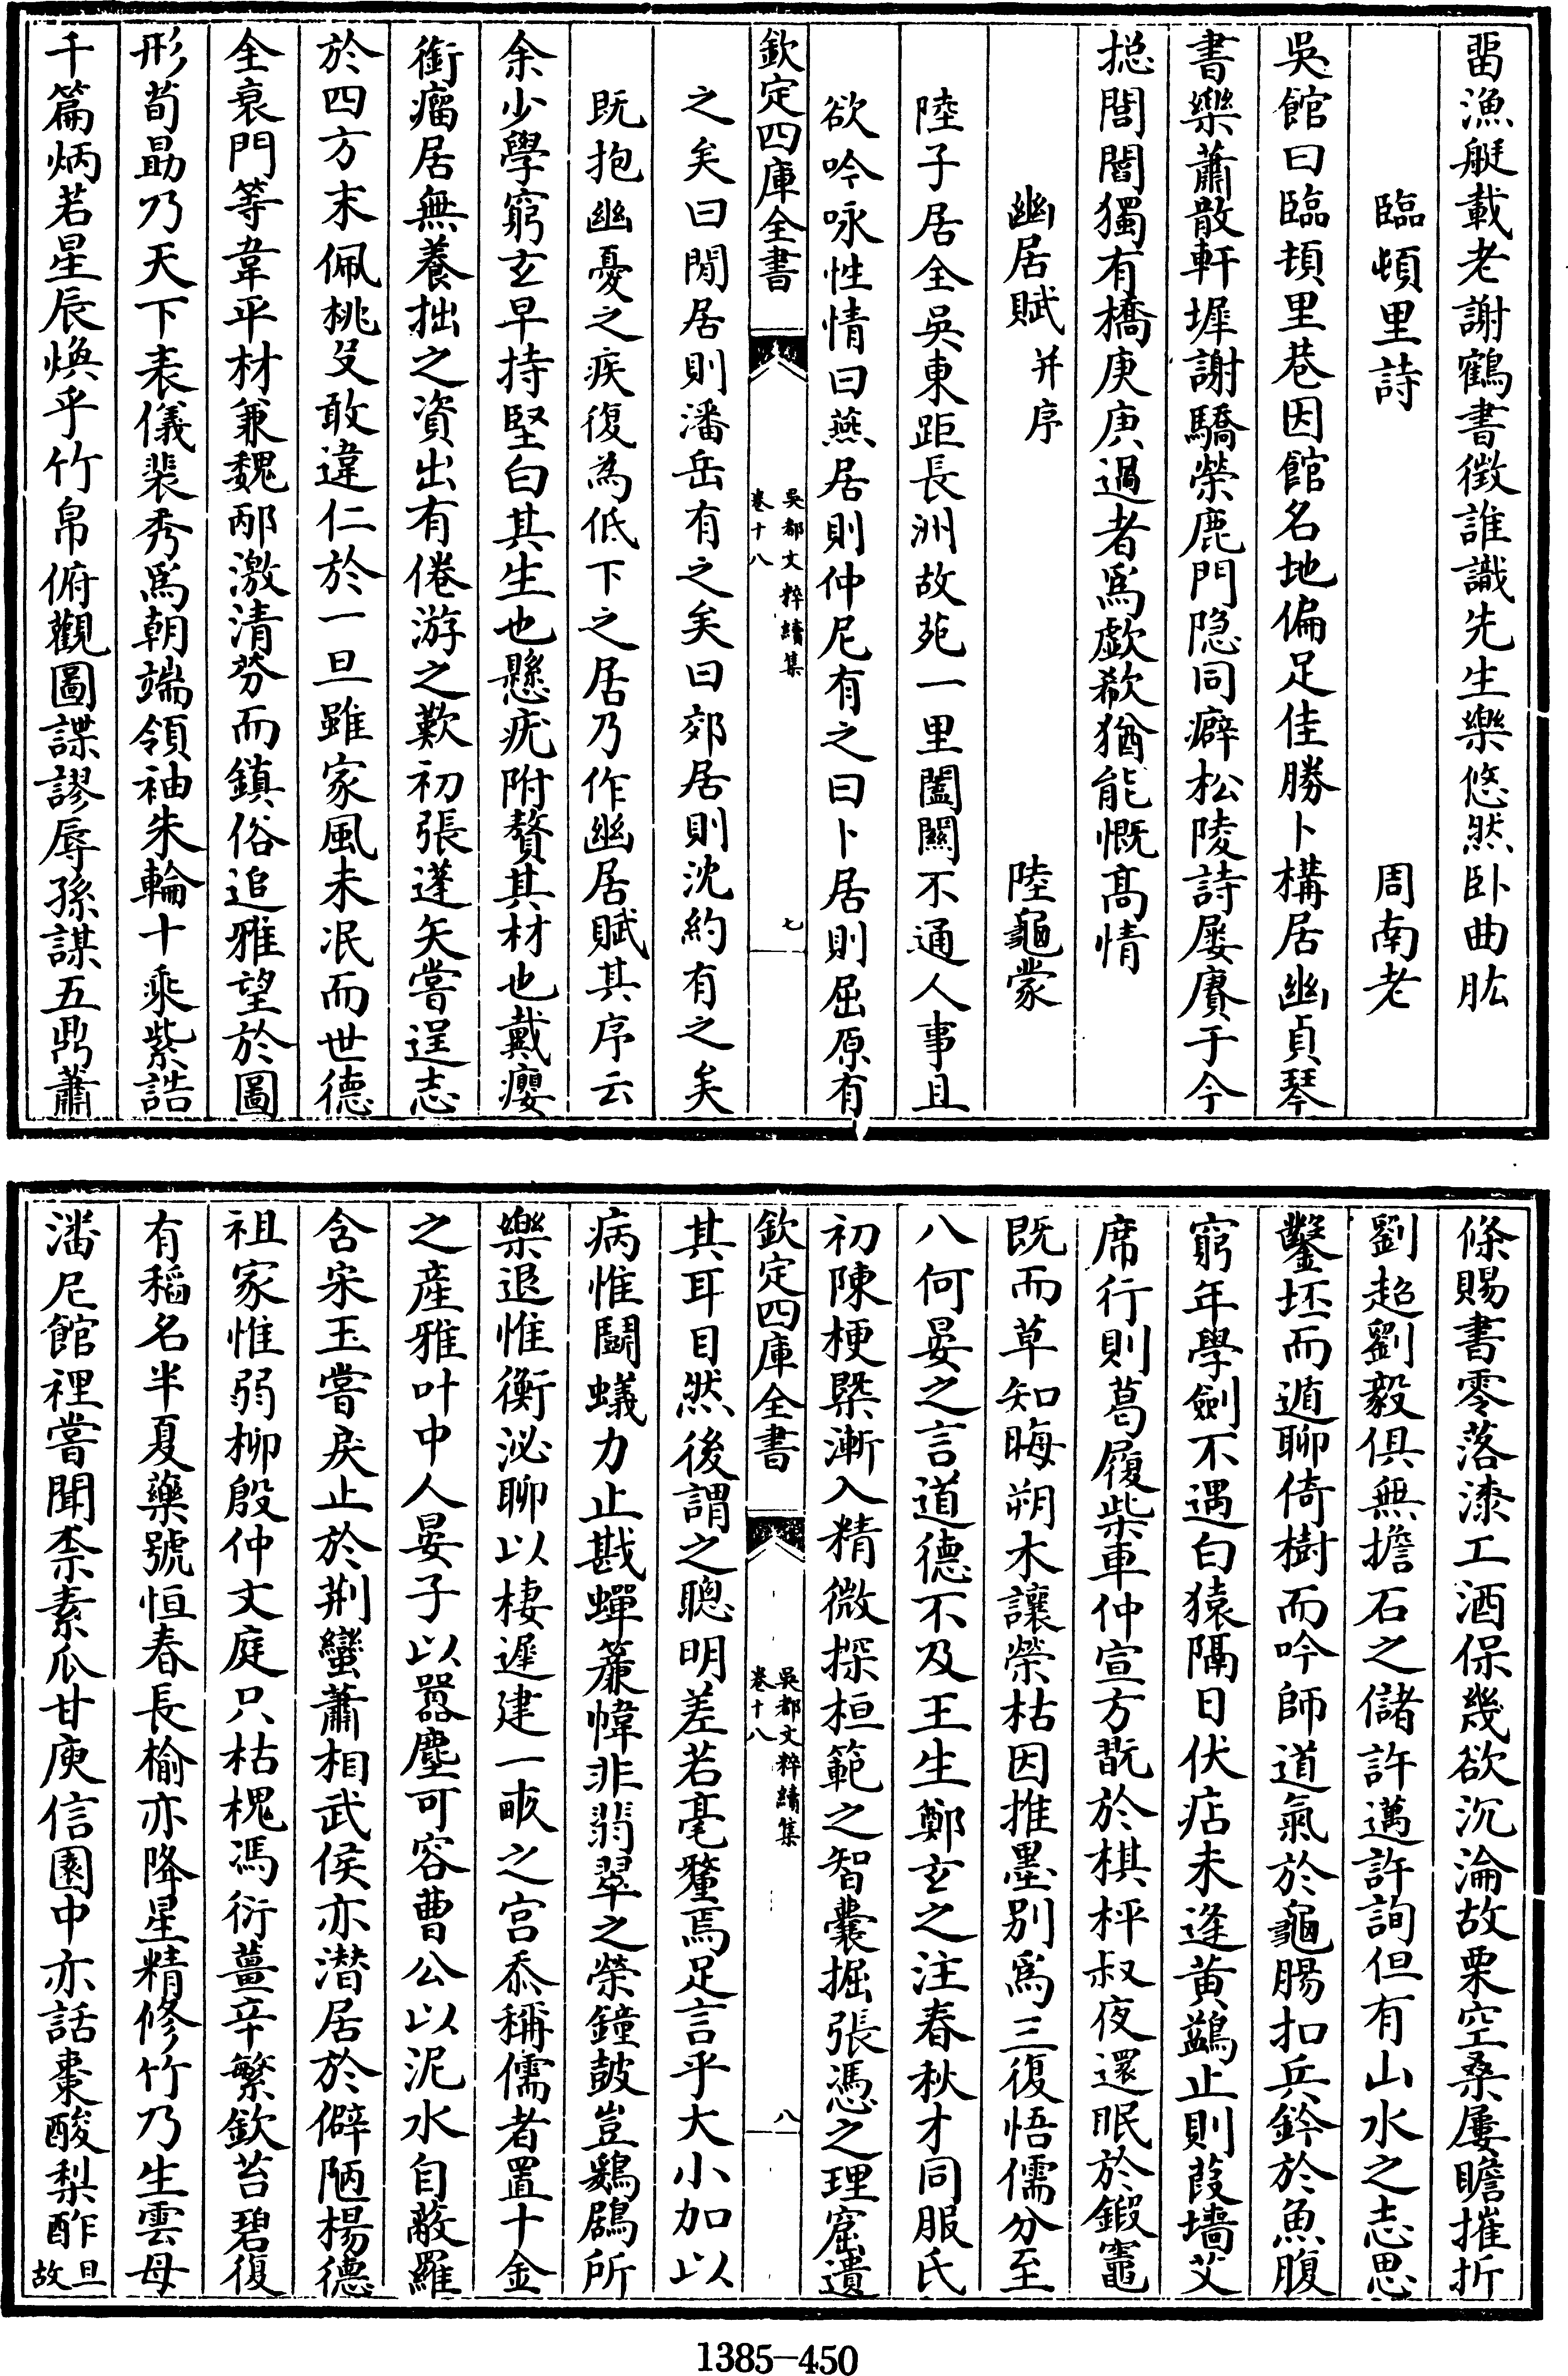 畱漁艇載老謝鶴書徴誰識先生樂悠然卧曲肱
臨頓里詩　周南老
吳館曰臨頓里巷因館名地偏足佳勝卜構居幽貞琴
書樂蕭散軒墀謝驕榮鹿門隱同癖松陵詩屡賡于今
摠閭閻獨有橋庚庚過者爲歔欷猶能慨髙情
幽居賦 并序　陸龜蒙
陸子居全吳東距長洲故苑一里闔關不通人事且
欲吟咏性情曰燕居則仲尼有之曰卜居則屈原有
欽定四庫全書　吳都文粹續集 卷十八　七
之矣曰閒居則潘岳有之矣曰郊居則沈約有之矣
既抱幽憂之疾復為低下之居乃作幽居賦其序云
余少學窮玄早持堅白其生也懸疣附贅其材也戴癭
銜瘤居無養拙之資出有倦游之歎初張蓬矢嘗逞志
於四方末佩桃殳敢違仁於一旦雖家風未泯而世德
全衰門等韋平材兼魏邴激清芬而鎮俗追雅望於圖
形荀勗乃天下表儀裴秀爲朝端領袖朱輪十乘紫誥
千篇炳若星辰煥乎竹帛俯觀圖諜謬辱孫謀五鼎蕭
條賜書零落漆工酒保幾欲沉淪故栗空桑屢瞻摧折
劉超劉毅俱無擔石之儲許邁許詢但有山水之志思
鑿坯而遁聊倚樹而吟師道氣於龜腸扣兵鈐於魚腹
窮年學劍不遇白猿隔日伏痁未逢黄鷁止則葭墻艾
席行則葛履柴車仲宣方翫於棋枰叔夜還眠於鍛竈
既而草知晦朔木讓榮枯因推墨别爲三復悟儒分至
八何晏之言道德不及王生鄭玄之注春秋才同服氏
初陳梗槩漸入精微探桓範之智囊掘張憑之理窟遺
欽定四庫全書　吳都文粹續集 卷十八　八
其耳目然後謂之聰明差若毫釐焉足言乎大小加以
病惟鬭蟻力止戡蟬簾幃非翡翠之榮鐘鼓豈鷄鶋所
樂退惟衡泌聊以棲遲建一畝之宫忝稱儒者置十金
之産雅叶中人晏子以嚣塵可容曹公以泥水自蔽羅
含宋玉嘗戻止於荆蠻蕭相武侯亦潛居於僻陋楊德
祖家惟弱柳殷仲文庭只枯槐馮衍薑辛繁欽苔碧復
有稻名半夏藥號恒春長楡亦降星精修竹乃生雲母
潘尼館裡嘗聞柰素瓜甘庾信園中亦話棗酸梨酢 旦故